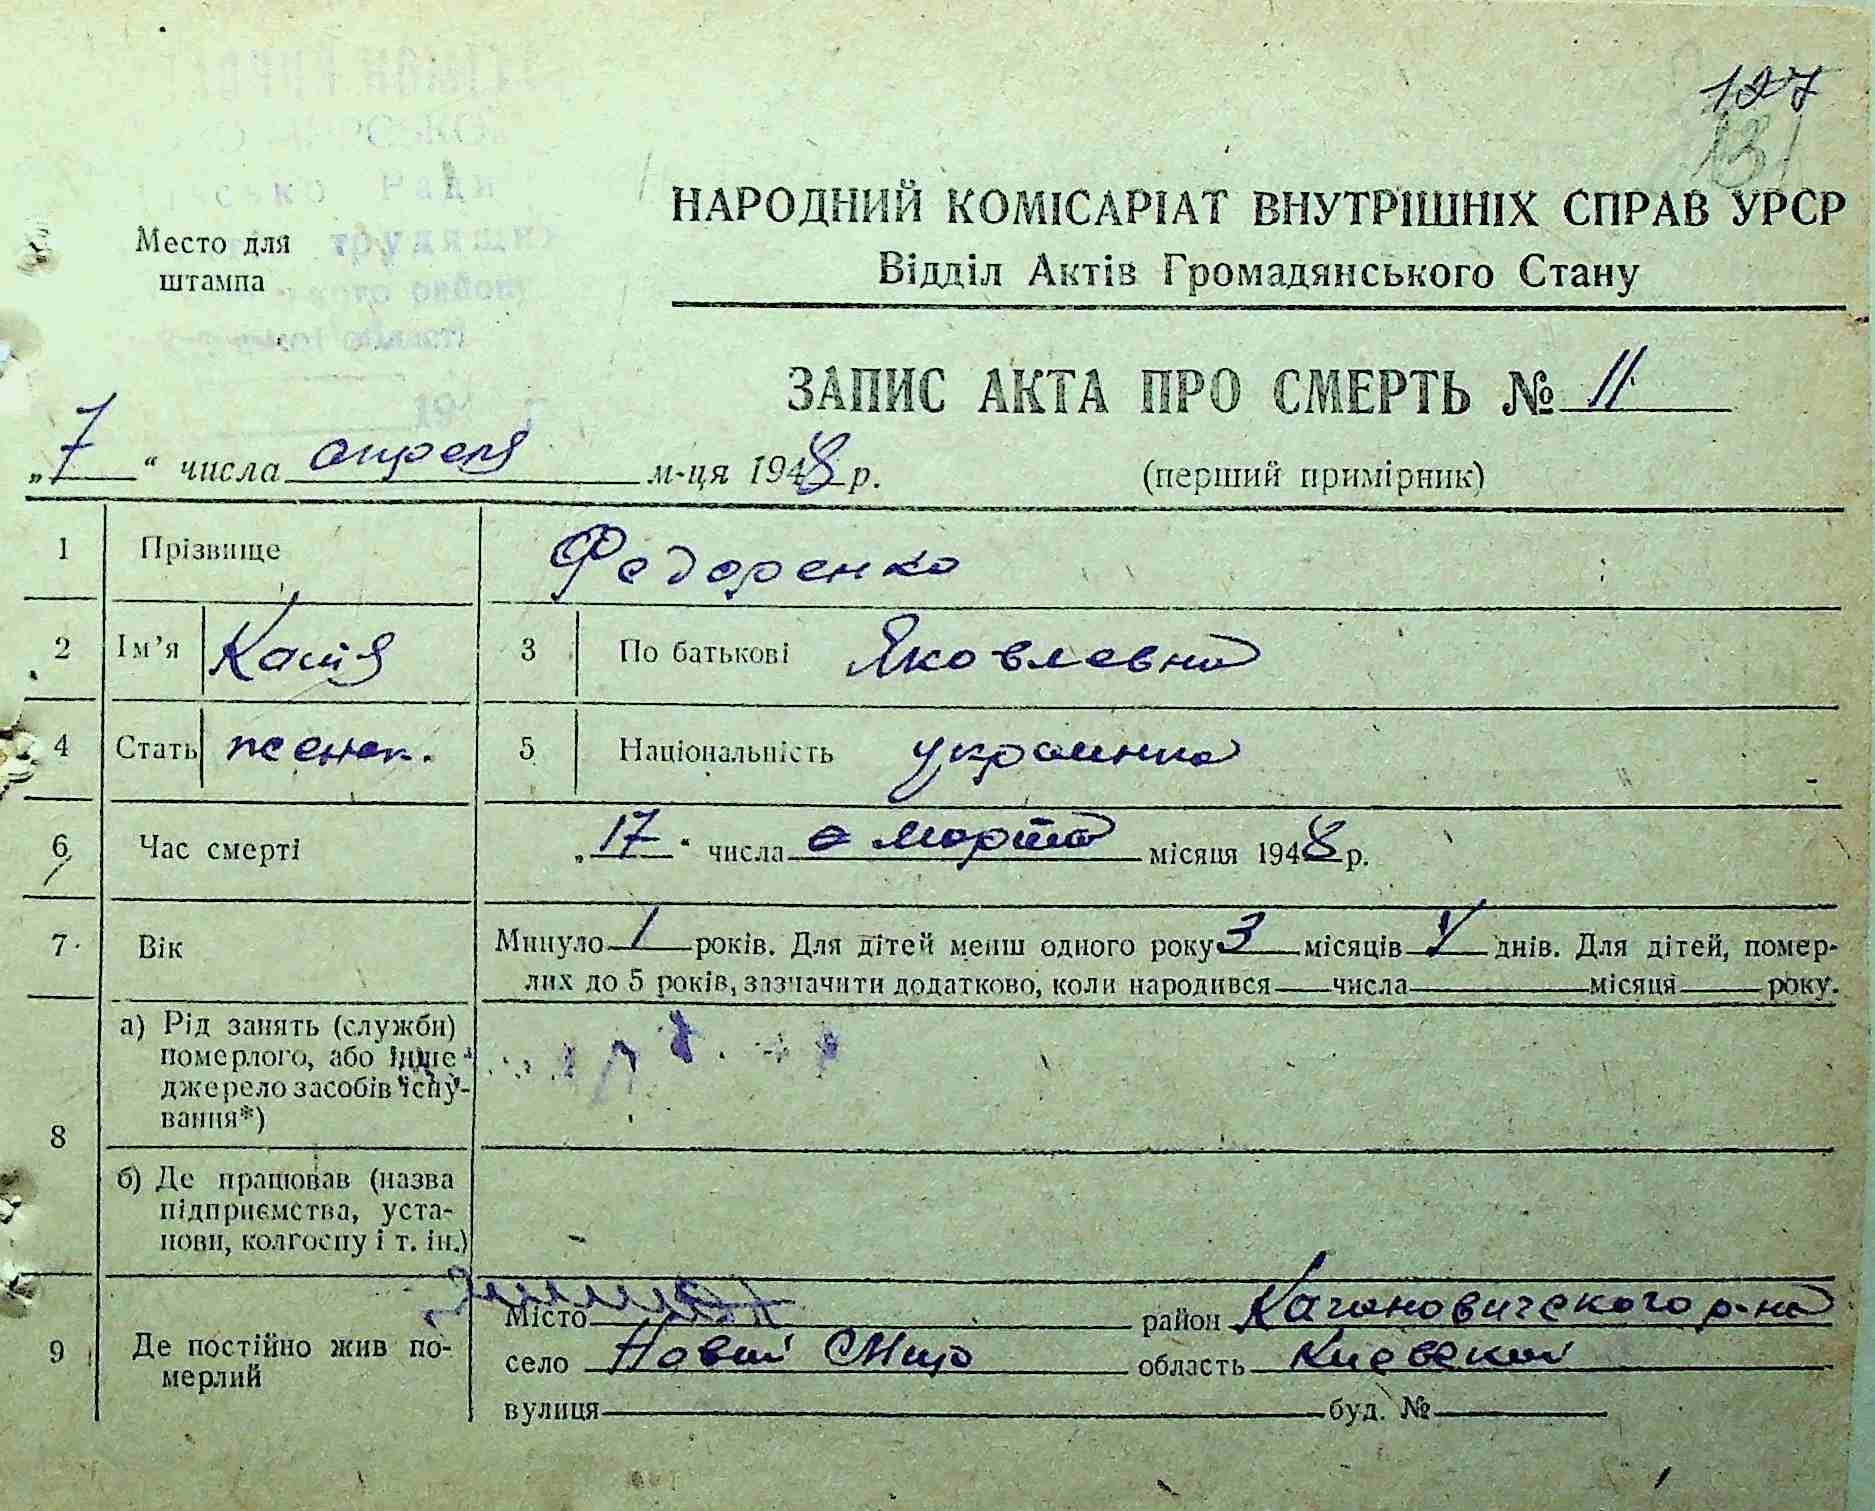 127
131
НАРОДНИЙ КОМІСАРІАТ ВНУТРІШНІХ СПРАВ УРСР
Відділ Актів Громадянського Стану
Место для
штампа
Ради
трудящих
області
19
ЗАПИС АКТА ПРО СМЕРТЬ № 11
„7“ числа апреля м-ця 1948 р. (перший примірник)
1 Прізвище Федоренко
2 Ім'я Катя 3 По батькові Яковлевна
4 Стать женск. 5 Національність украинка
6 Час смерті „17“ числа марта місяця 1948 р.
7 Вік Минуло 1 років. Для дітей менш одного року 3 місяців днів. Для дітей, помер-
лих до 5 років, зазначити додатково, коли народився числа місяця року.
8 а) Рід занять (служби)
померлого, або інше
джерело засобів існу-
вання*)
б) Де працював (назва
підприємства, уста-
нови, колгоспу і т. ін.)
9 Де постійно жив по-
мерлий
Місто район Кагановичского р-на
село Новий область Киевской
вулиця буд. №